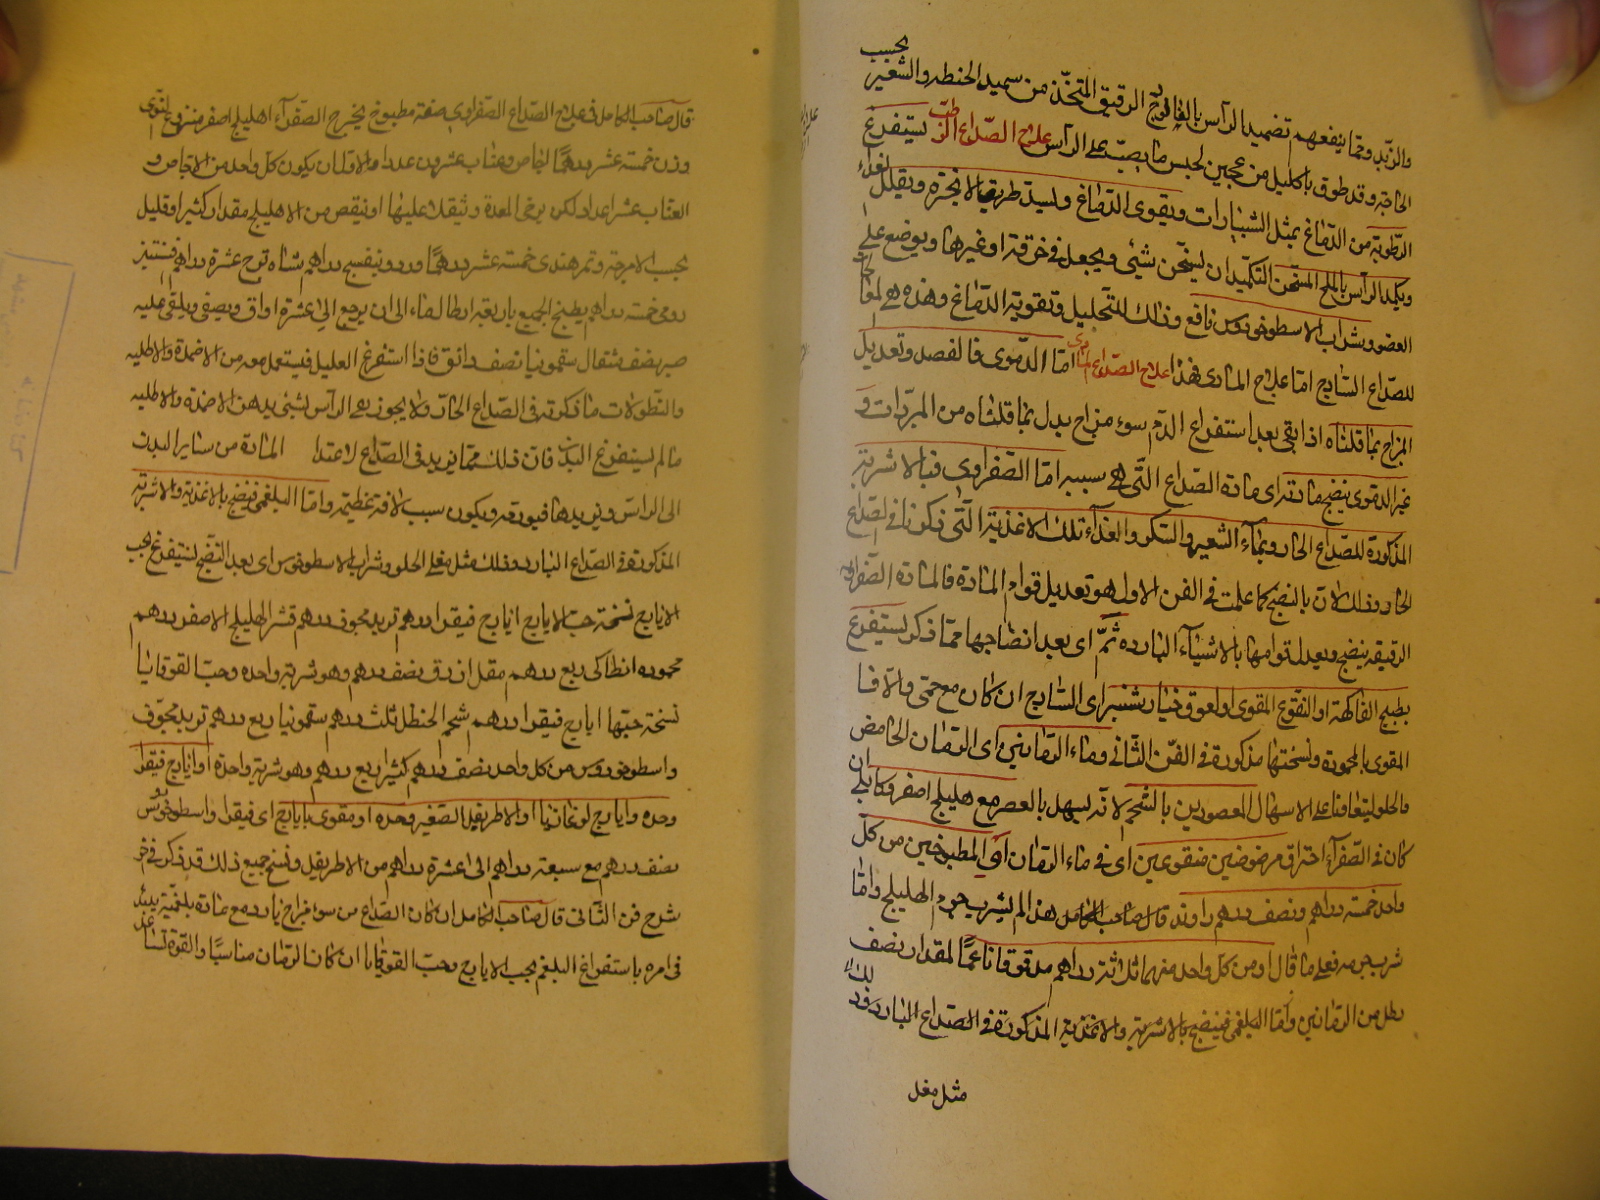 بحسب
والزبد ومما ينفعهم تضميد الرأس بالفالوذج الرقيق المتخذ من سميد الحنطه والشعير
الحاجة وقد طوق باكليل من عجين لحبس ما يصب على الرأس علاج الصداع الرطب يستفرغ
الرطوبة من الدماغ بمثل الشبيارات ويقوى الدماغ وليسد طريق الابخرة ويقلل الغذاء
ويكمد الرأس بالملح المسخن التكميد ان يسخن شيئى ويجعل فى خرقة او غيرها ويوضع على
العضو وشراب الاسطوخودوس نافع وذلك للتحليل وتقوية الدماغ وهذه هى
للصداع الساذج اما علاج المادى فهذا علاج الصداع المادى اما الدموى فالفصد وتعديل
المزاج بما قلناه اذا بقى بعد استفراغ الدم سوء مزاج يدل بما قلناه من المبردات و
غير الدموى ينضج مادته اى مادة الصداع التى هى سببه اما الصفراوى فبالاشربة
المذكورة للصداع الحار وبماء الشعير والسكر والغذاء تلك الاغذية التى ذكرنا فى الصداع
الحار وذلك لان النضج كما علمت فى الفن الاول هو تعديل قوام المادة فالمادة الصفراوية
الرقيقة ينضج ويعدل قوامها بالاشياء البارده ثم اى بعد انضاجها مما ذكر يستفرغ
بطبيخ الفاكهة او النقوع المقوى او لعوق خيار شنبر اى الساذج ان كان مع حمى والا فبا
المقوى بالمحمودة ونسختها مذكورة فى الفن الثانى وماء الرمانين اى الرمان الحامض
والحلو ليتعاونا على الاسهال المعصورين بالشحم لانه يسهل بالعصر مع هليلج اصفر وكابلى ان
كان فى الصفراء احتراق مرضوضين منقوعين اى فى ماء الرمان او المطبوخين من كل
واحد خمسة دراهم ونصف درهم راوند قال صاحب الكامل هذا لم يشرب جرم الهليلج واما
شرب جرمه فعلى ما قال او من كل واحد منهما ثلاثة دراهم مدقوقا ناعما لمقدار نصف
رطل من الرمانين واما البلغمى فينضج بالاشربة والاغذية المذكورة فى الصداع البارد وذلك
مثل مغلى
قال صاحب الكامل فى علاج الصداع الصفراوى صفة مطبوخ يخرج الصفراء اهليلج اصفر منزوع النوى
وزن خمسة عشر درهما اجاص وعناب عشرون عددا والاولى ان يكون كل واحد من الاجاص و
العناب عشر اعداد لكن يرخى المعدة ويثقل عليها او ينقص من الاهليلج مقدار كثير او قليل
بحسب الامزجة وتمر هندى خمسة عشر درهما وورد وبنفسج دراهم شاهترج عشرة دراهم افسنتين
رومى خمسة دراهم يطبخ الجميع باربعة ارطال ماء الى ان يرجع الى عشرة اواق ويصفى ويلقى عليه
صبر نصف مثقال سقمونيا نصف دانق فاذا استفرغ العليل فيستعمل معه من الاضمدة والاطلية
والنطولات ما ذكرته فى الصداع الحار ولا يجوز بعى الرأس بشئ من هذه الاضمدة والاطلية
ما لم يستفرغ البدن فان ذلك مما يزيد فى الصداع لاحتدا المادة من ساير البدن
الى الرأس ويزيدها فيورمه ويكون سبب لافة عظيمة واما البلغمى فينضج بالاغذية والاشربة
المذكورة فى الصداع البارد وذلك مثل مغلى الحلو وشراب الاسطوخودوس اى بعد النضج يستفرغ بحب
الايارج نسخة حب الايارج ايارج فيقرا درهم تربد مجوف درهم قشر الهليلج الاصفر درهم
محموده انطاكى ربع درهم مقل ازرق نصف درهم وهو شربة واحده وحب القوقايا
نسخة حبها ايارج فيقرا درهم شحم الحنظل ثلث درهم سقمونيا ربع درهم تربد مجوف
واسطوخودوس من كل واحد نصف درهم كثيرا ربع درهم وهو شربة واحدة او ايارج فيقرا
وحده وايارج لوغاذيا او الاطريفل الصغير وحده او مقوى بايارج اى فيقرا واسطوخودوس
نصف درهم مع سبعة دراهم الى عشرة دراهم من الاطريفل ونسخ جميع ذلك قد ذكر فى
شرح فن الثانى قال صاحب الكامل ان كان الصداع من سوء مزاج بارد مع مادة بلغمية
فى امره باستفراغ البلغم بحب الايارج وحب القوقايا ان كان الزمان مناسبا والقوة